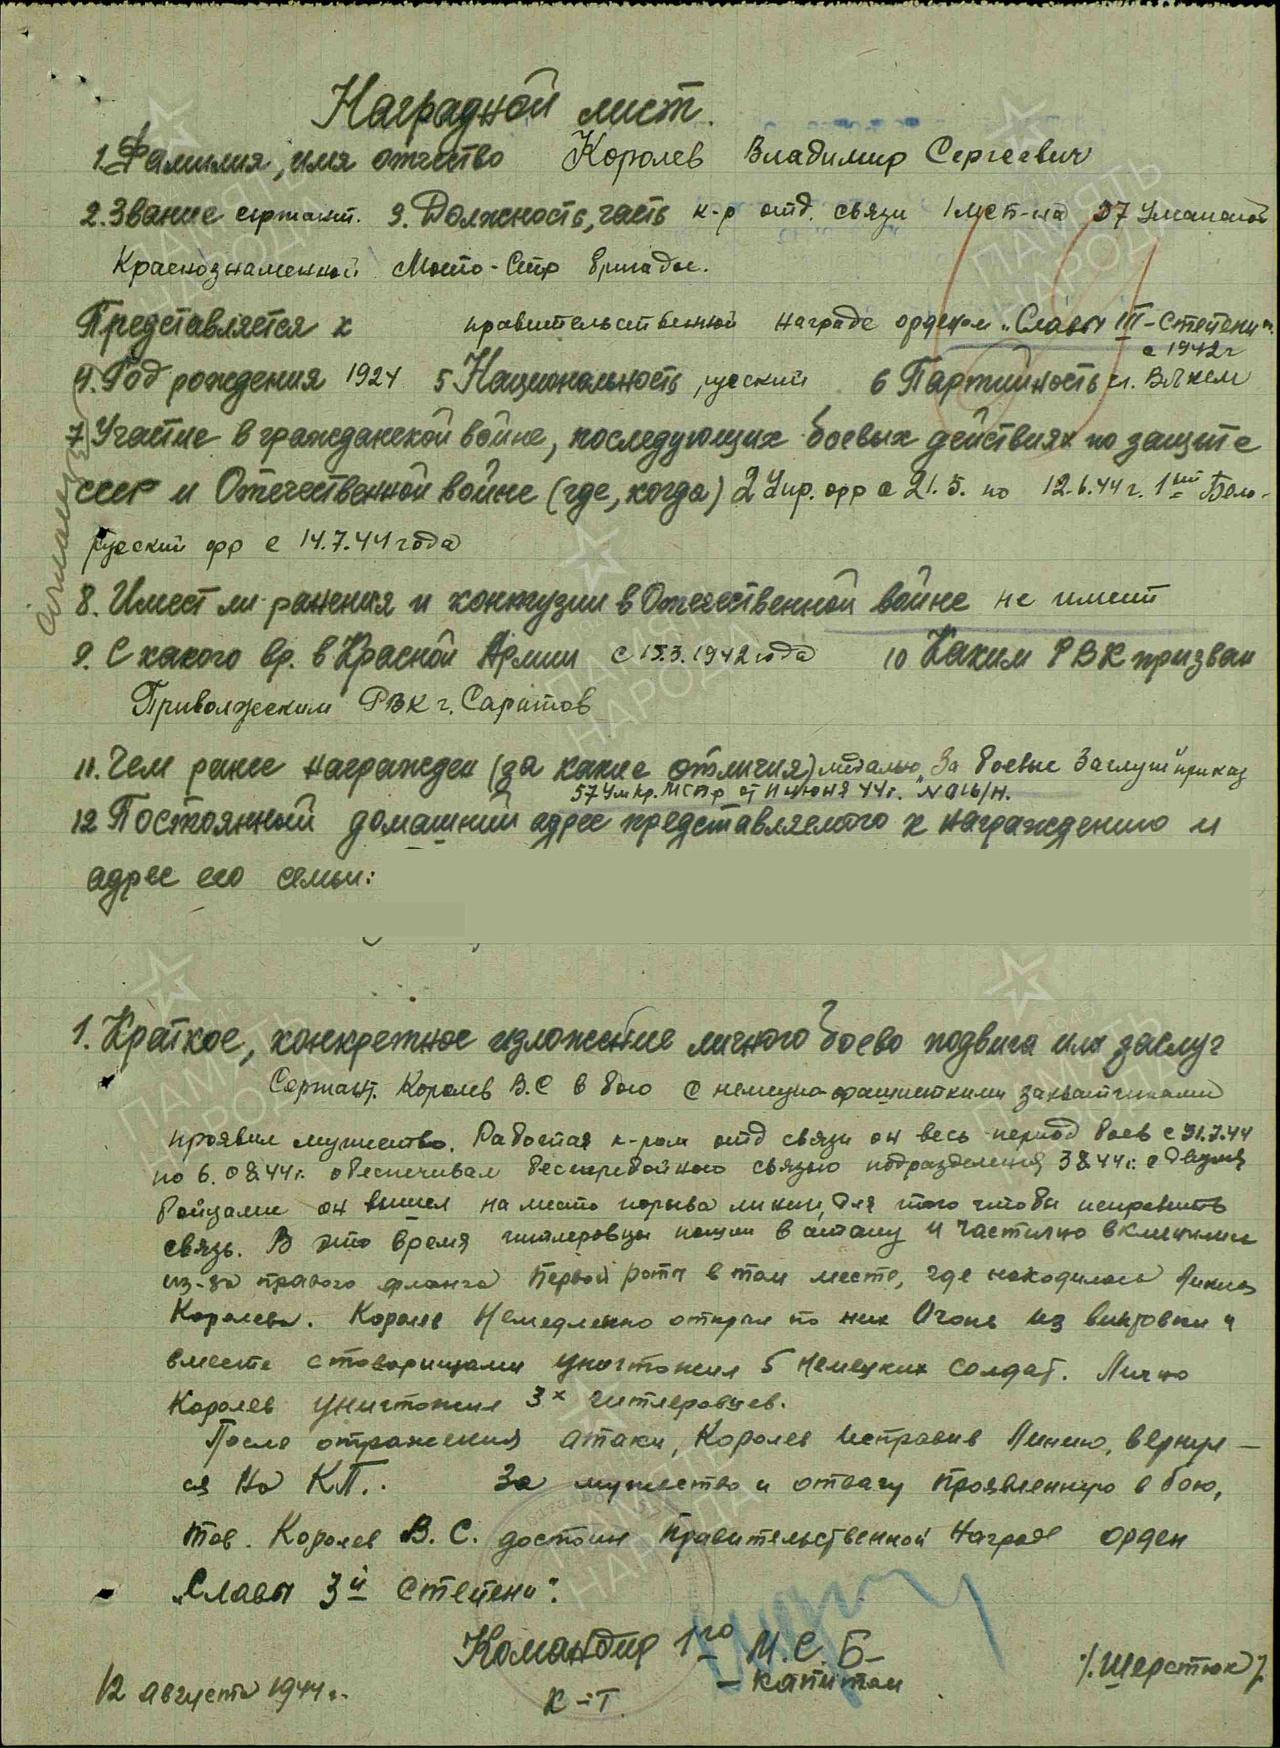 Наградной лист.
1. Фамилия, имя отчество Королев Владимир Сергеевич
2. Звание сержант. 3. Должность, часть к-р отд. связи 1 мсп-на 57 Уманской
Краснознаменной Мото-Стр бригады.
Представляется к правительственной награде орденом „Славы III-Степени".
с 1942 г
4. Год рождения 1924 5 Национальность русский 6 Партийность чл. ВЛКСМ
7 Участие в гражданской войне, последующих боевых действиях по защите
СССР и Отечественной войне (где, когда) 2 Укр. фр с 21.5. по 12.6.44 г. 1ый Бело-
русский фр с 14.7.44 года
8. Имеет ли ранения и контузии в Отечественной войне не имеет
9. С какого вр. в Красной Армии с 15.3.1942 года 10 Каким РВК призван
Приволжским РВК г. Саратов
11. Чем ранее награжден (за какие отличия) медалью „За боевые Заслуги" приказ
57 Ум Кр. МСБр от 11 июня 44 г. N 016/н.
12 Постоянный домашний адрес представляемого к награждению и
адрес его семьи:
1. Краткое, конкретное изложение личного боево подвига или заслуг
Сержант. Королев В.С в бою с немецко-фашисткими захватчиками
проявил мужество. Работая к-ром отд связи он весь период боев с 31.7.44
по 6.08.44 г. обеспечивал бесперебойного связью подразделения 3.8.44 г. с двумя
бойцами он вышел на место порыва линии, для того чтобы исправить
связь. В это время гитлеровцы пошли в атаку и частично вклинились
из-за правого фланга Первой роты в том месте, где находилась Линия
Королева. Королев Немедленно открыл по ним Огонь из винтовки и
вместе с товарищами уничтожил 5 немецких солдат. Лично
Королев уничтожил 3х гитлеровцев.
После отражения атаки, Королев Исправив Линию, вернул-
ся На КП. За мужество и отвагу проявленную в бою,
тов. Королев В. С. достоин Правительственной Награде орден
„Славы 3й степени".
Командир 1го М.С.Б-
К-т - капитан /Шерстюк/
12 августа 1944 г.
ПАМЯТЬ НАРОДА